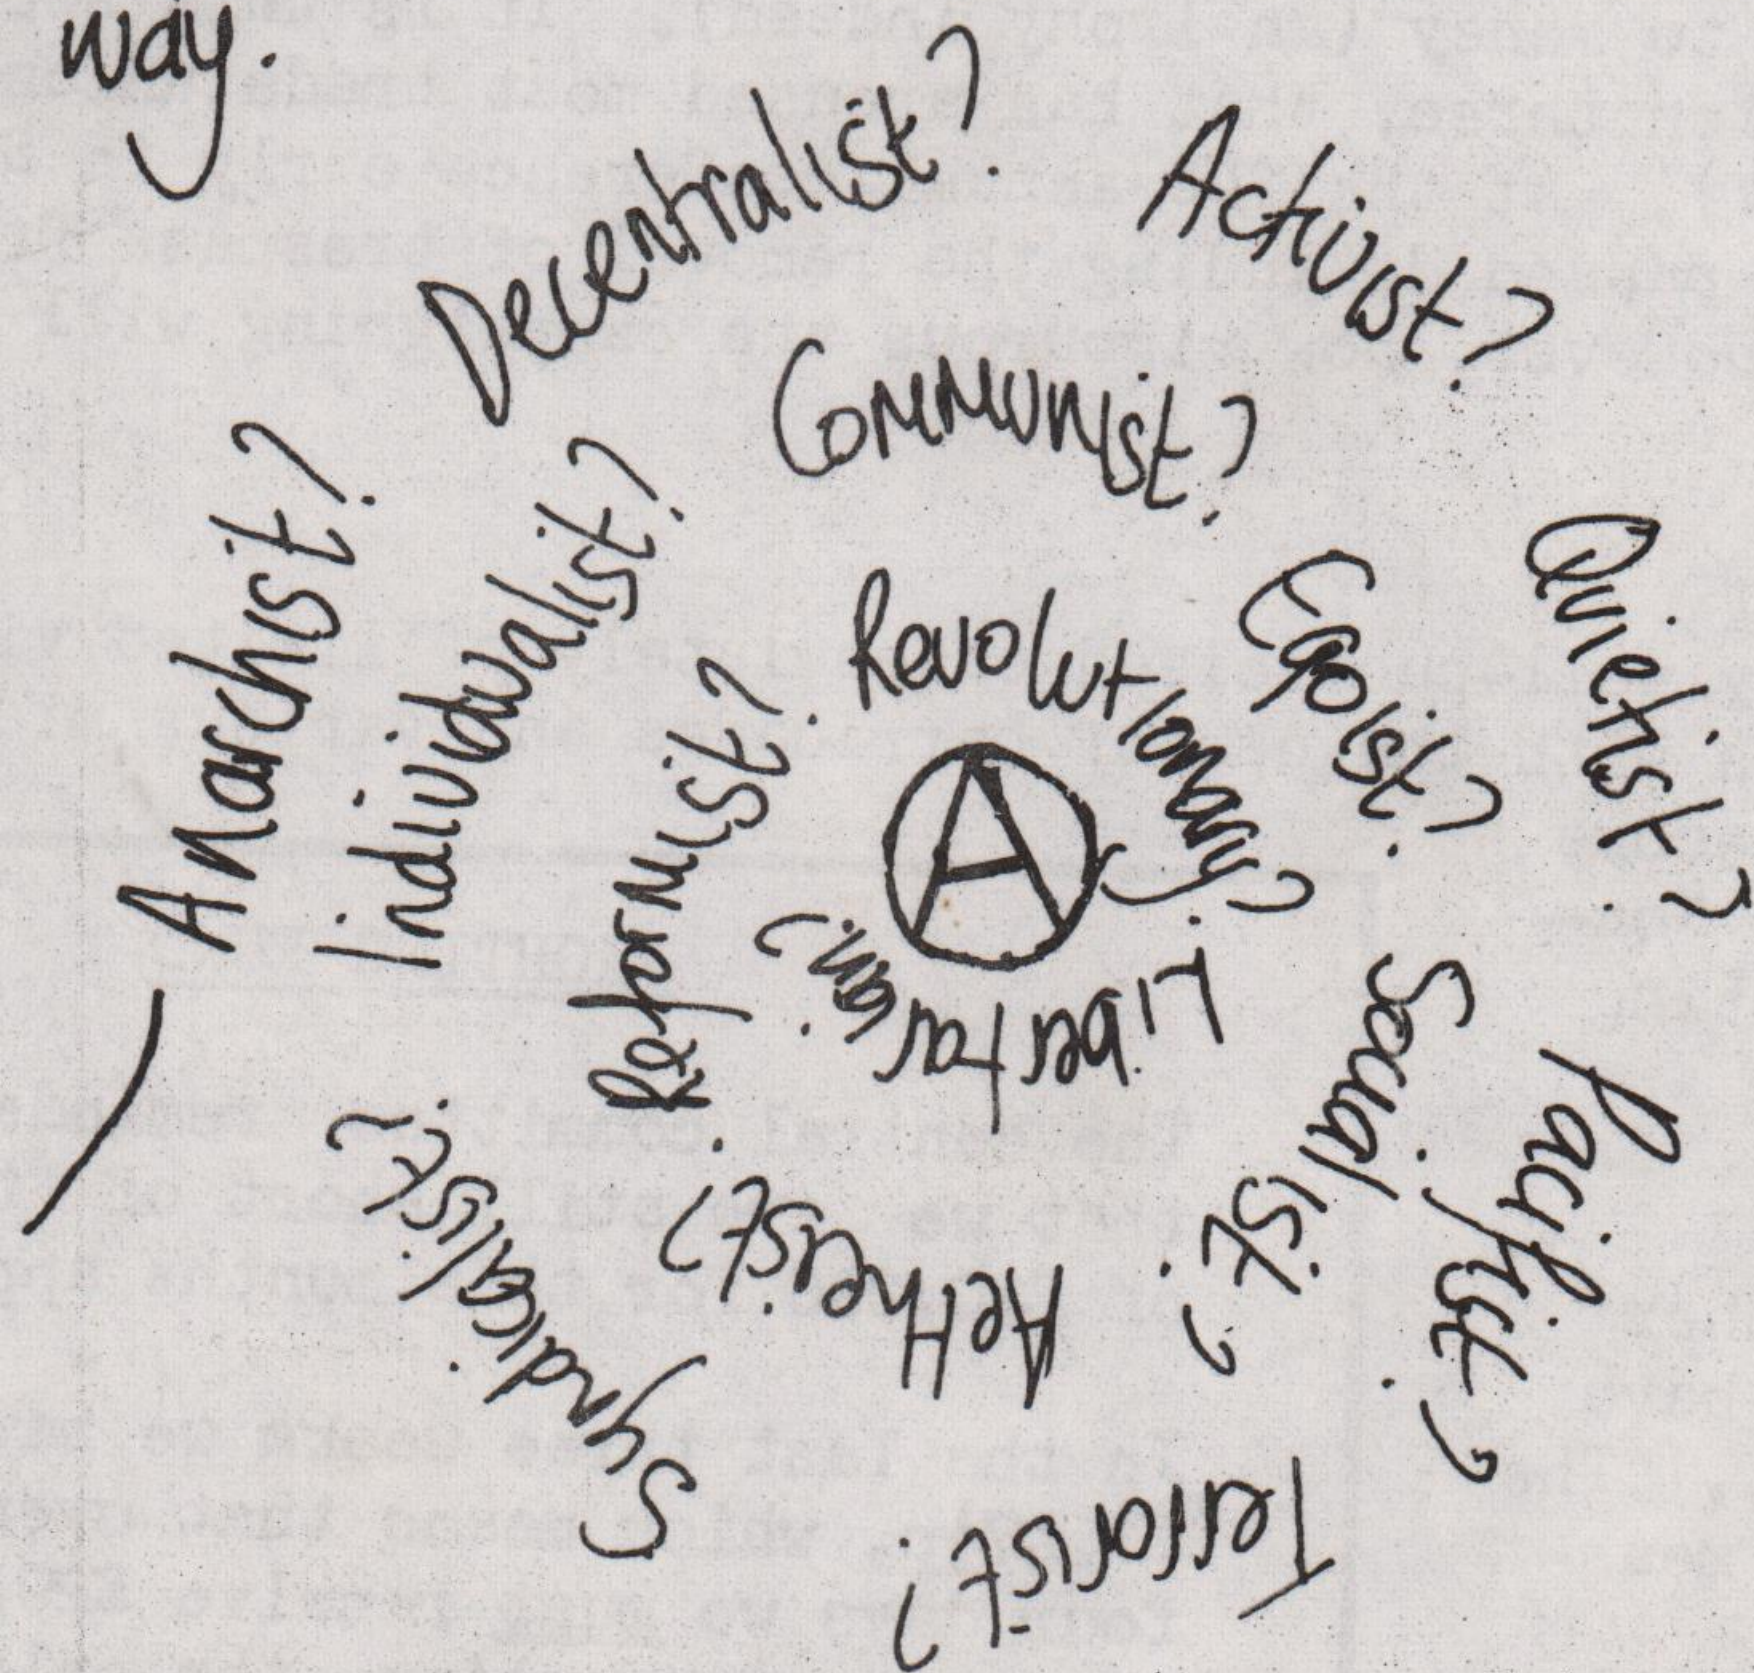 way.
Anarchist?
Decentralist?
Activist?
Quietist?
Pacifist?
Terrorist?
Syndicalist?
Individualist?
Communist?
Egoist?
Socialist?
AetHeist?
Reformist?
Revolutionary?
Libertarian?
A